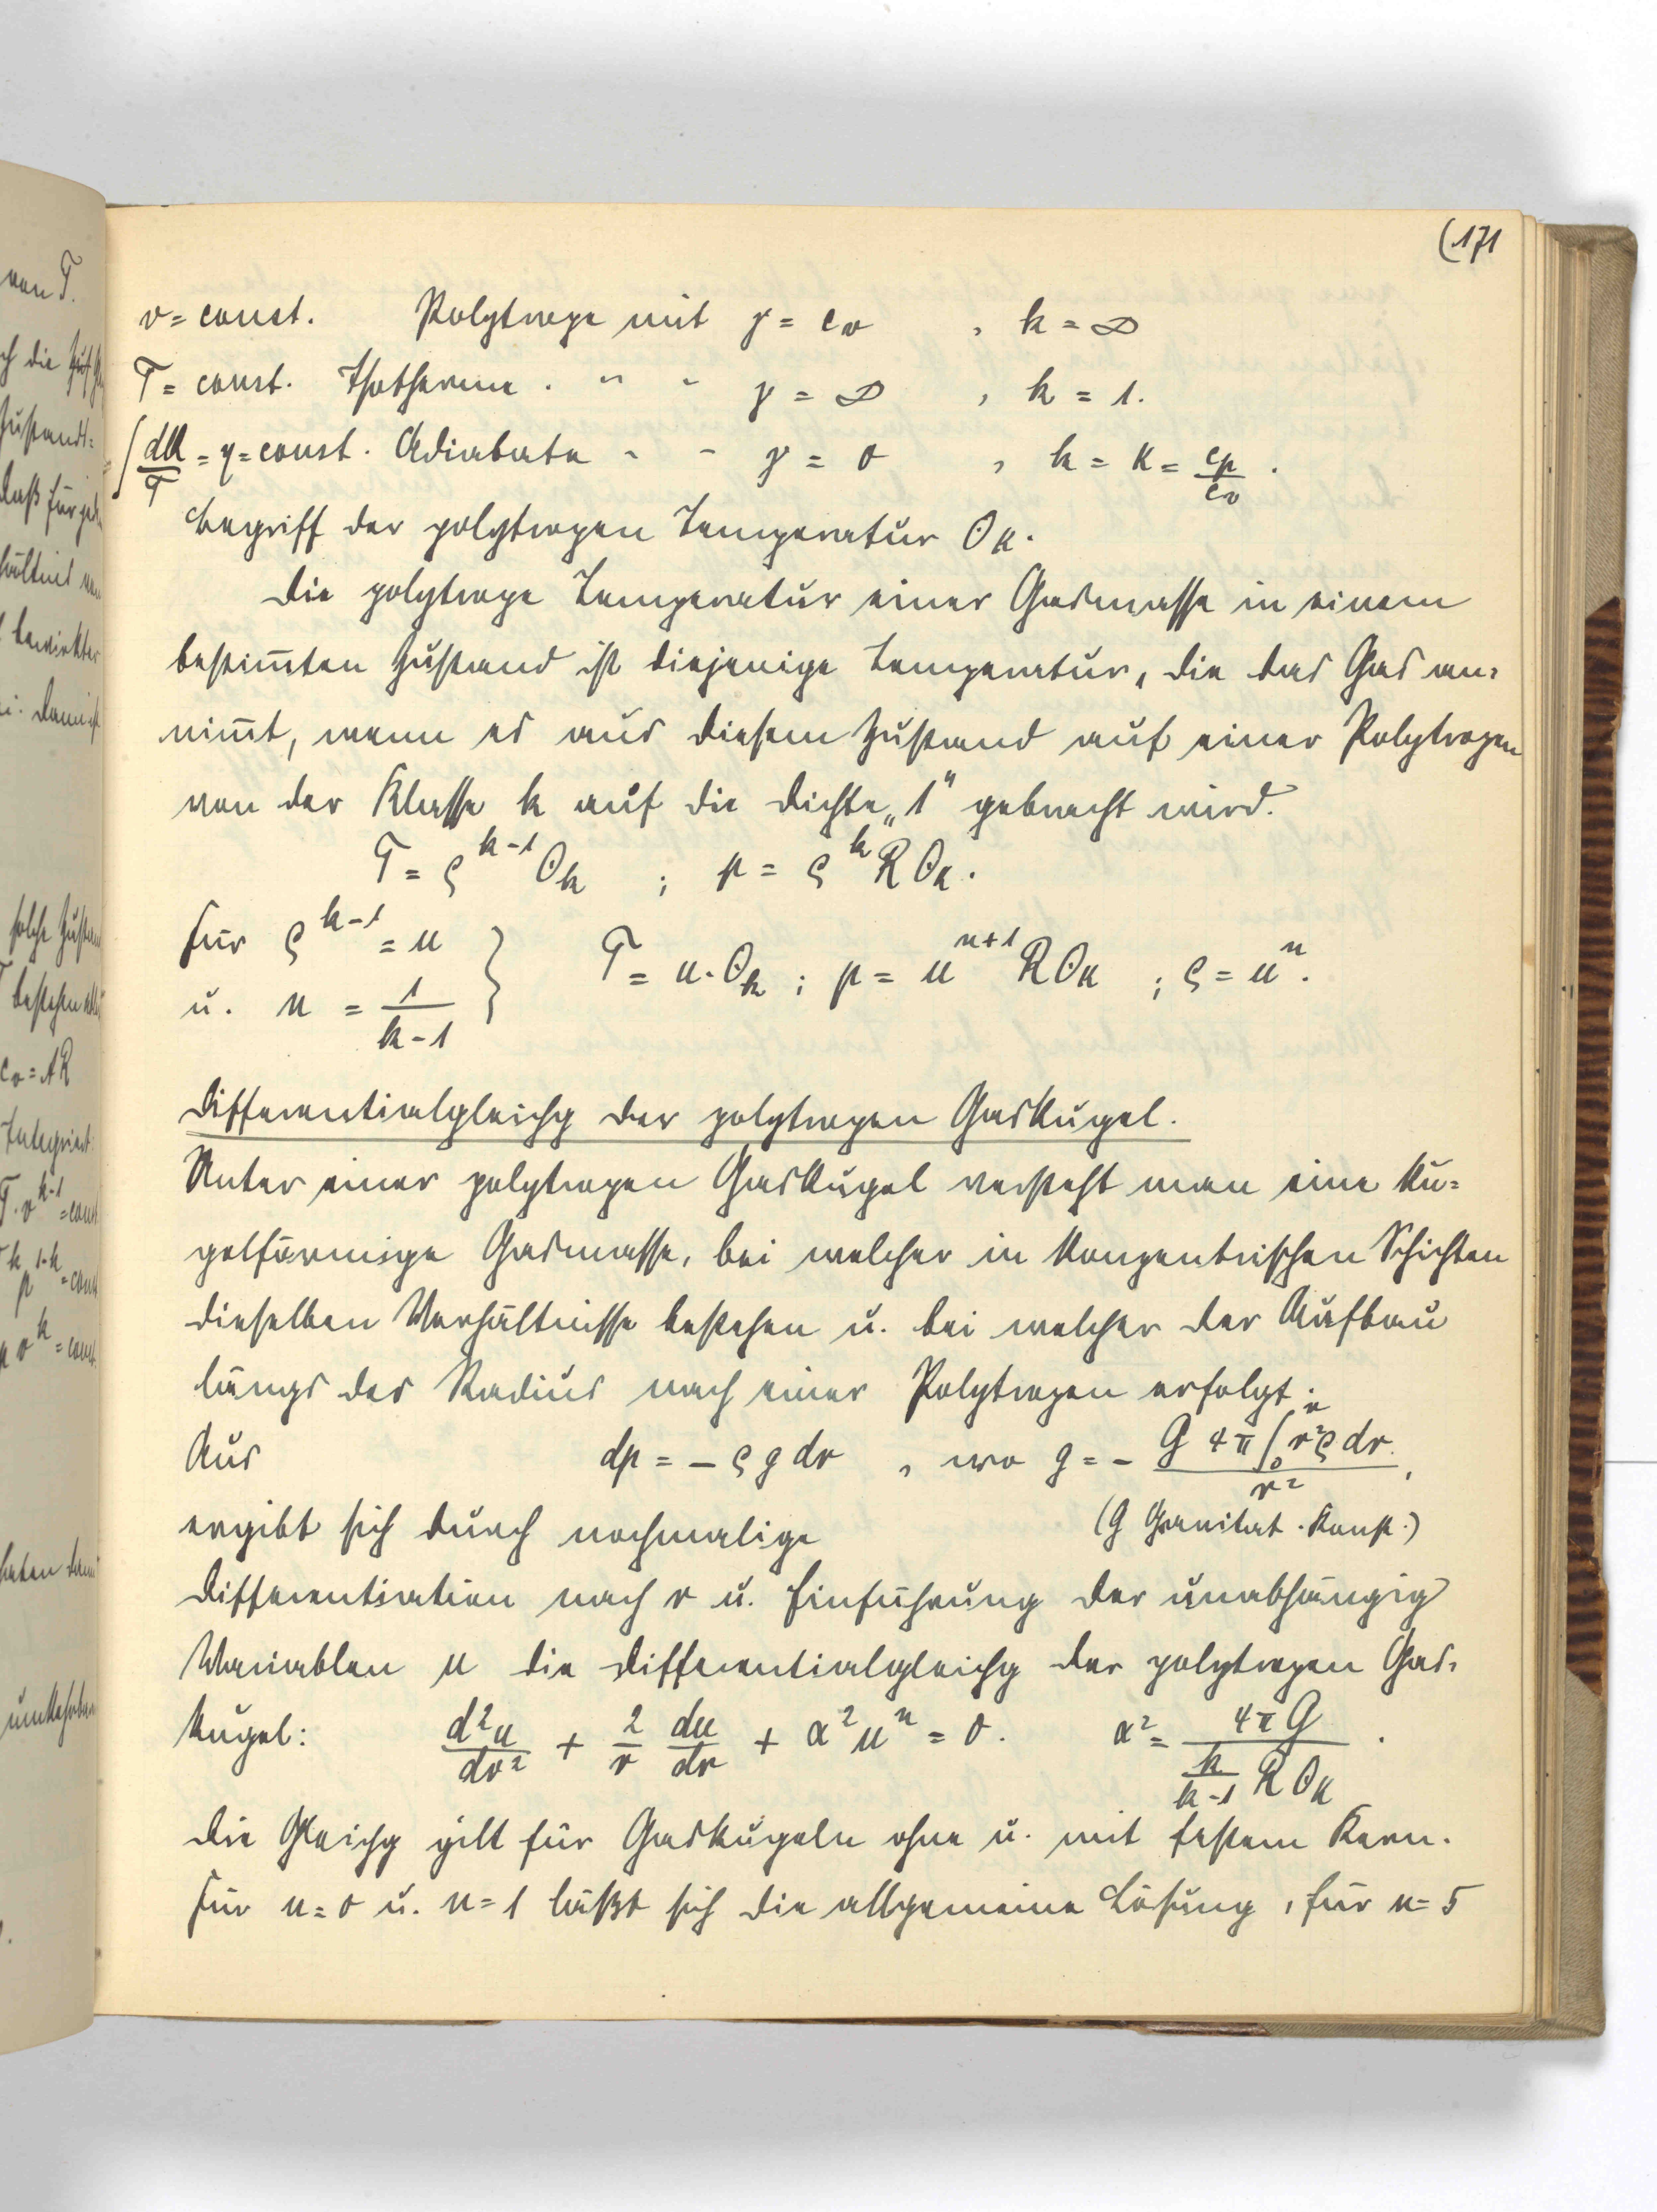 (171
v = const. Polytrope mit γ = c_v , k = ∞
T = const. Isotherme . " " γ = ∞ , k = 1.
∫ dQ/T = η = const. Adiabate " " γ = 0 , k = κ = c_p/c_v .
Begriff der polytropen Temperatur Θ_k.
Die polytrope Temperatur einer Gasmasse in einem
bestim̅ten Zustand ist diejenige Temperatur, die das Gas an-
nim̅t, wenn es aus diesem Zustand auf einer Polytropen
von der Klasse k auf die Dichte „1" gebracht wird.
T = ϱ^{k-1} Θ_k ; p = ϱ^k R Θ_k.
Für ϱ^{k-1} = u
u. n = 1/(k-1) } T = u·Θ_k ; p = u^{n+1} R Θ_k ; ϱ = u^n.
Differentialgleichg der polytropen Gaskugel.
Unter einer polytropen Gaskugel versteht man eine ku=
gelförmige Gasmasse, bei welcher in konzentrischen Schichten
dieselben Verhältnisse bestehen u. bei welcher der Aufbau
längs des Radius nach einer Polytropen erfolgt.
Aus dp = - ϱ g dr , wo g = - G 4π ∫_0^r r²ϱ dr / r² ,
ergibt sich durch nochmalige (G Gravitat. Konst.)
Differentiation nach r u. Einführung der unabhängig
Variablen u die Differentialgleichg der polytropen Gas-
kugel: d²u/dr² + 2/r du/dr + α² u^n = 0. α² = 4πG / (k/(k-1) R Θ_k) .
Die Gleichg gilt für Gaskugeln ohne u. mit festem Kern.
Für n = 0 u. n = 1 läßt sich die allgemeine Lösung, für n = 5